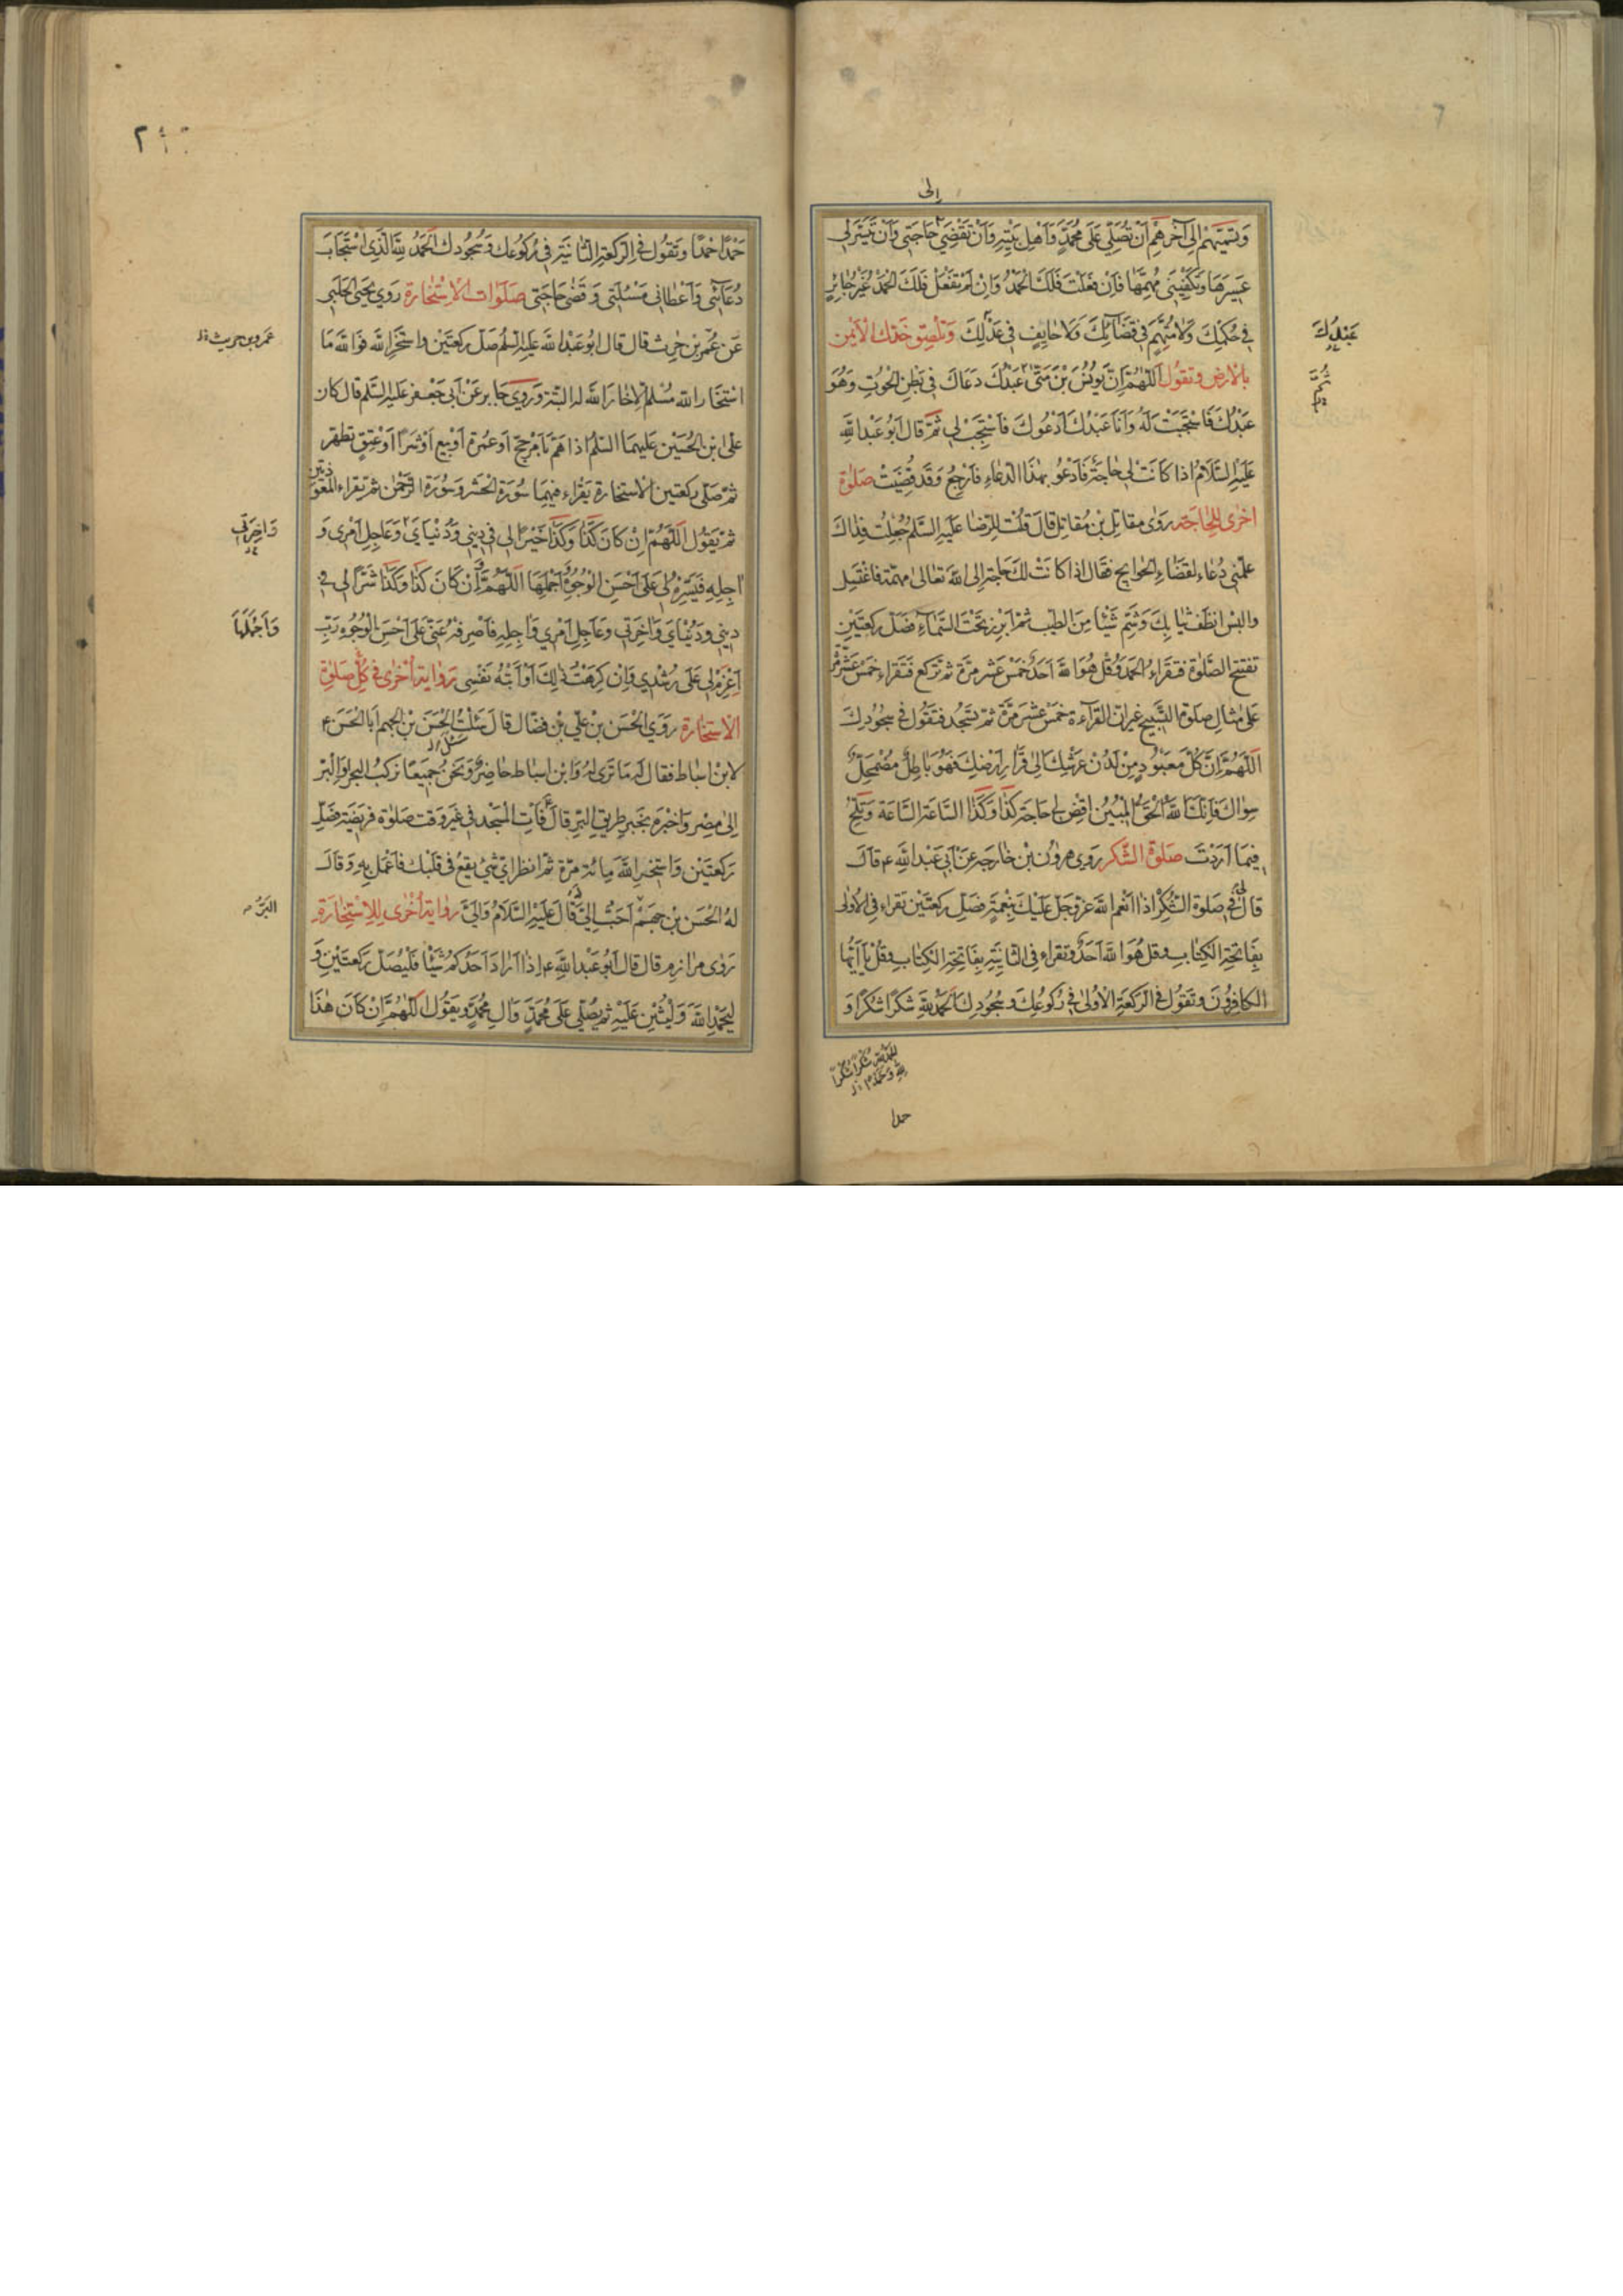 إلى
وتسميهم إلى آخرهم أن تصلي على محمد وأهل بيته وأن تقضي حاجتي وأن تيسر لي
عسيرها وتكفيني مهمها فإن فعلت فلك الحمد وإن لم تفعل فلك الحمد غير جائر
في حكمك ولا متهم في قضائك ولا حايف في عدلك وتلصق خدك الأيمن
بالأرض وتقول اللهم إن يونس بن متى عبدك دعاك في بطن الحوت وهو
عبدك فاستجبت له وأنا عبدك أدعوك فاستجب لي ثم قال أبو عبد الله
عليه السلام اذا كانت لي حاجة فأدعو بهذا الدعاء فأرجع وقد قضيت صلوة
اخرى للحاجة روى مقاتل بن مقاتل قال قلت للرضا عليه السلم جعلت فداك
علمني دعاء لقضاء الحوايج فقال اذا كانت لك حاجة إلى الله تعالى مهمة فاغتسل
والبس انظف ثيابك وشم شيئا من الطيب ثم ابرز تحت السماء فصل ركعتين
تفتتح الصلوة فتقراء الحمد وقل هو الله أحد خمس عشر مرة ثم تركع فتقراء خمس عشر
على مثال صلوة التسبيح غير ان القرآءة خمس عشر مرة ثم تسجد فتقول في سجودك
اللهم إن كل معبود من لدن عرشك الى قرار ارضك فهو باطل مضمحل
سواك فإنك الله الحق المبين اقض لي حاجة كذا وكذا الساعة الساعة وتلح
فيما أردت صلوة الشكر روى هرون بن خارجة عن أبي عبد الله قال
قال في صلوة الشكر إذا أنعم الله عز وجل عليك بنعمة فصل ركعتين تقراء في الأولى
بفاتحة الكتاب وقل هو الله أحد وتقراء في الثانية بفاتحة الكتاب وقل يا أيها
الكافرون وتقول في الركعة الأولى في ركوعك وسجودك الحمد لله شكرا شكرا و
عبدك
حمدا
حمدا حمدا وتقول في الركعة الثانية في ركوعك وسجودك الحمد لله الذي استجاب
دعائي وأعطاني مسئلتي وقضى حاجتي صلوات الاستخارة روى يحيى الحلبي
عن عمر بن حريث قال قال أبو عبد الله عليه السلم صل ركعتين واستخر الله فوالله ما
استخار الله مسلم إلا خار الله له البتة وروى جابر عن أبي جعفر عليه السلم قال كان
علي بن الحسين عليهما السلم اذا هم بأمر حج أو عمرة أو بيع أو شرا أو عتق تطهر
ثم صلى ركعتين للاستخارة يقراء فيهما سورة الحشر وسورة الرحمن ثم يقراء المعوذتين
ثم يقول اللهم إن كان كذا وكذا خيرا لي في ديني ودنياي وعاجل أمري و
آجله فيسره لي على أحسن الوجوه وأجملها اللهم وإن كان كذا وكذا شرا لي في
ديني ودنياي وآخرتي وعاجل أمري وآجله فاصرفه عني على أحسن الوجوه رب
اعزم لي على رشدي وإن كرهت ذلك أو أبته نفسي رواية أخرى في كل صلوة
الاستخارة روى الحسن بن علي بن فضال قال سئلت الحسن بن الجهم أبا الحسن
لابن اسباط فقال له ما ترى له وابن اسباط حاضر ونحن جميعا نركب البحر أو البر
إلى مصر وأخبره بخبر طريق البر قال فأت المسجد في غير وقت صلوة فريضة فصل
ركعتين واستخر الله مائة مرة ثم انظر أي شيء يقع في قلبك فاعمل به وقال
له الحسن بن جهم أحب إلي قال عليه السلام وإلي رواية أخرى للاستخارة
روى مرازم قال قال أبو عبد الله إذا أراد أحدكم شيئا فليصل ركعتين و
ليحمد الله وليثن عليه ثم يصلي على محمد وال محمد ويقول اللهم إن كان هذا
عمرو بن حريث
وآخرتي
وأجملها
البر